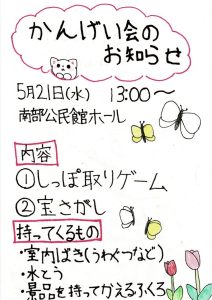 かんげい会の
お知らせ
5月21日(水) 13:00〜
南部公民館ホール
内容
①しっぽ取りゲーム
②宝さがし
持ってくるもの
・室内ばき(うわぐつなど)
・水とう
・景品を持ってかえるふくろ